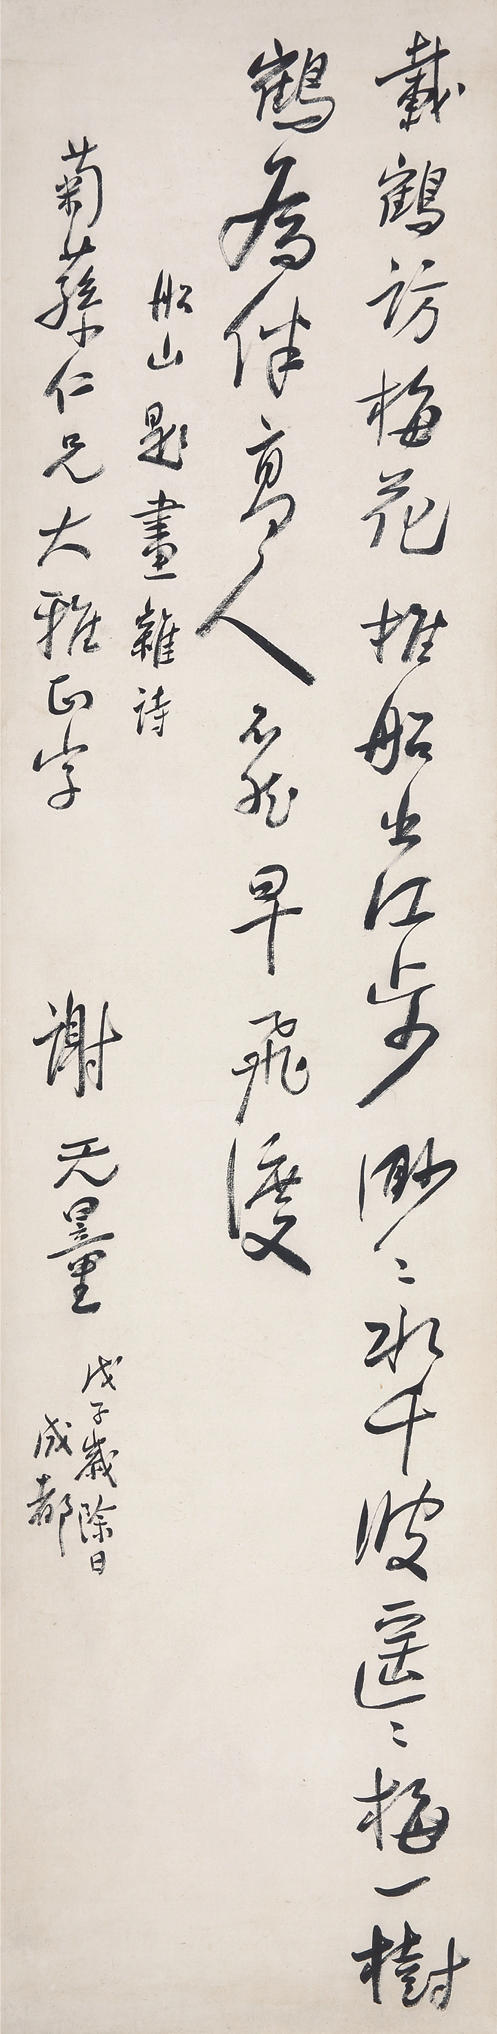 載鶴訪梅花推船出江步渺〻水千波遥〻梅一樹
鶴為伴高人不然早飛渡
船山題畫雜詩
菊蓀仁兄大雅正字
謝无量
戊子歲除日
成都